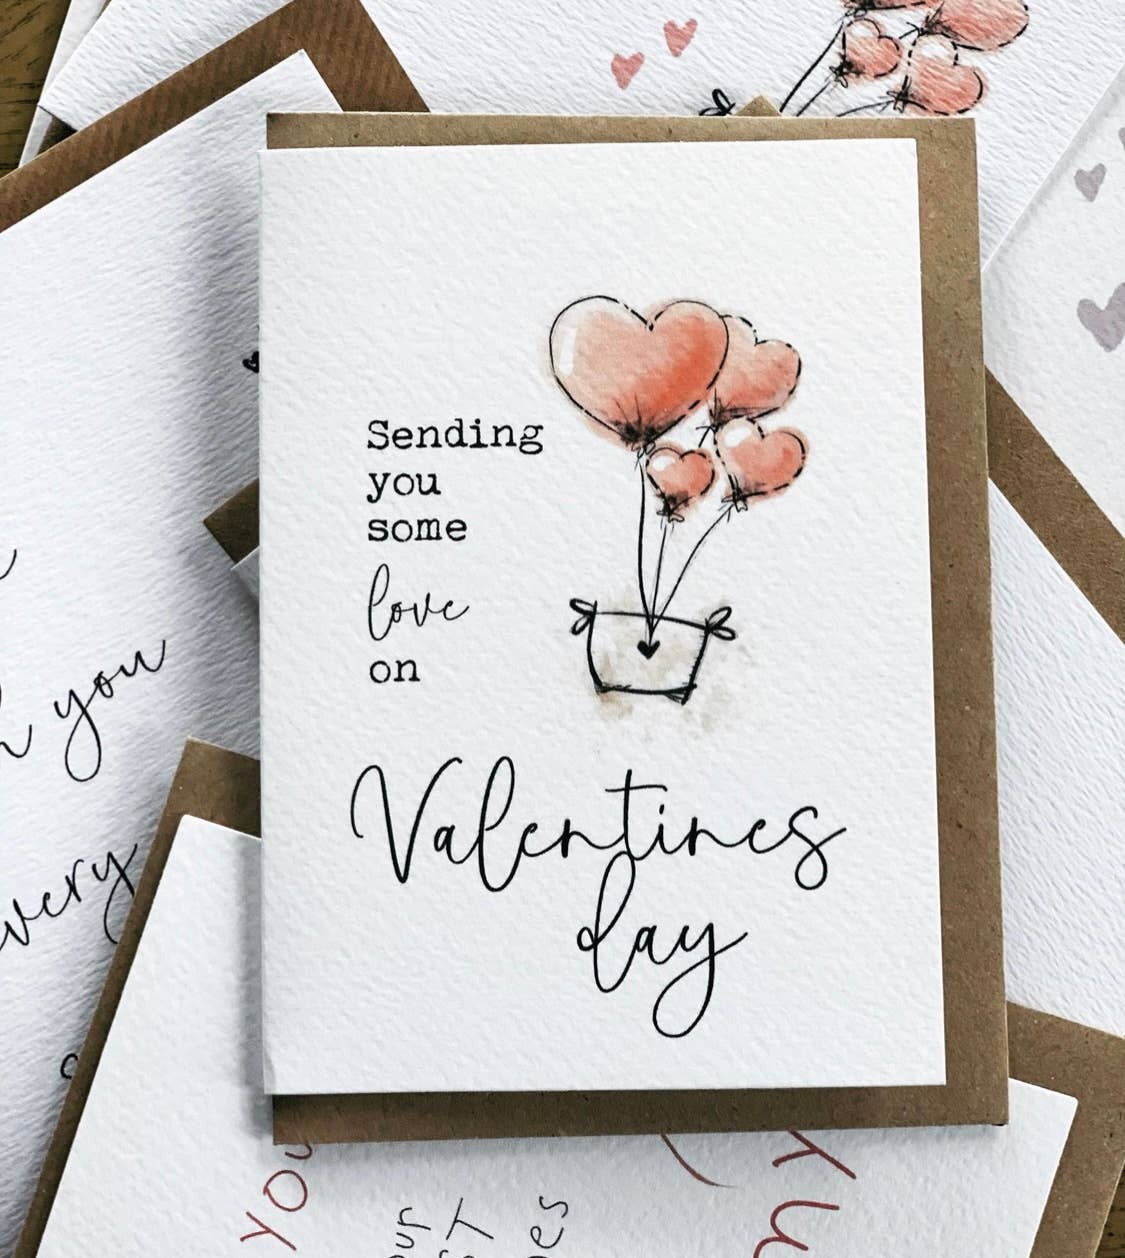 Sending
you
some
love
on
Valentines
day
you
very
you